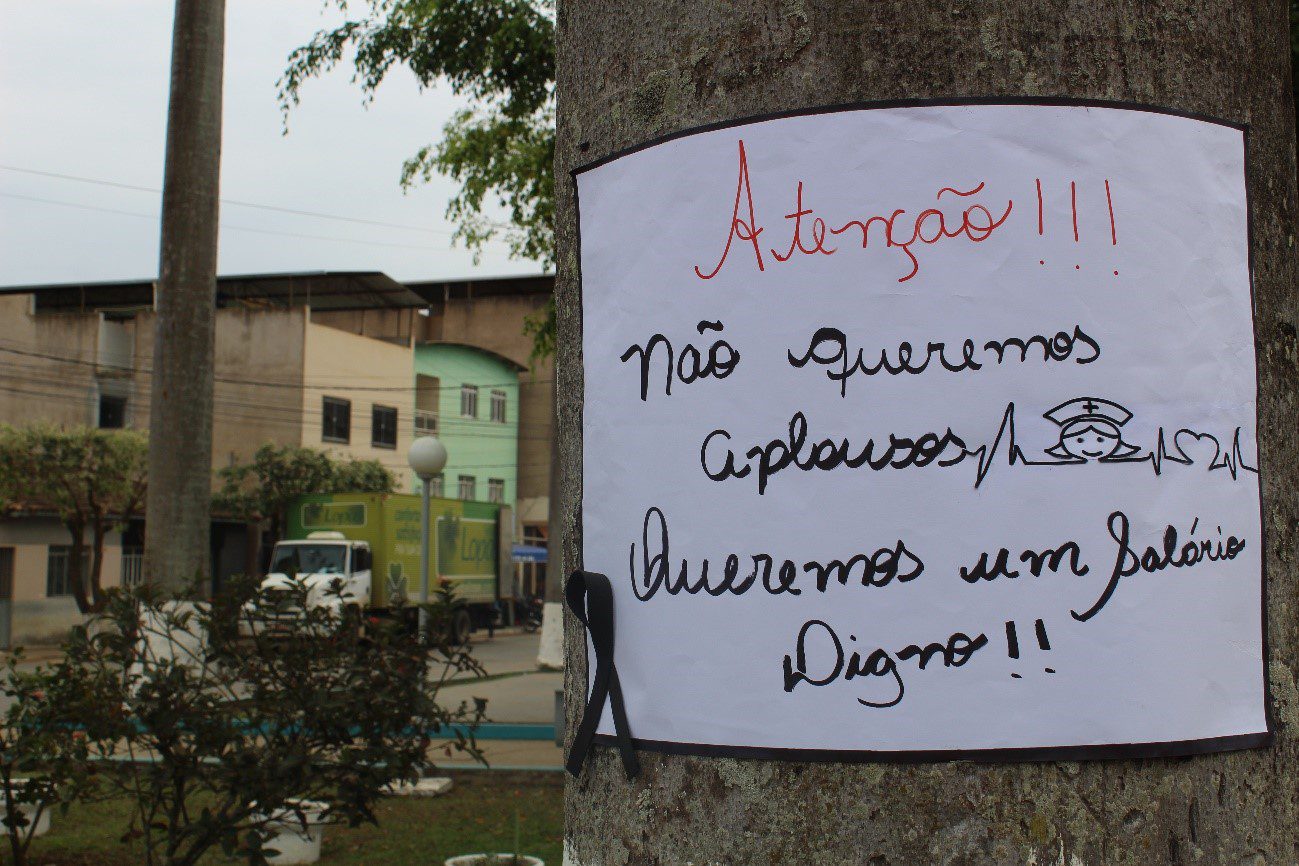 Atenção!!!
Não queremos
aplausos
Queremos um Salário
Digno!!